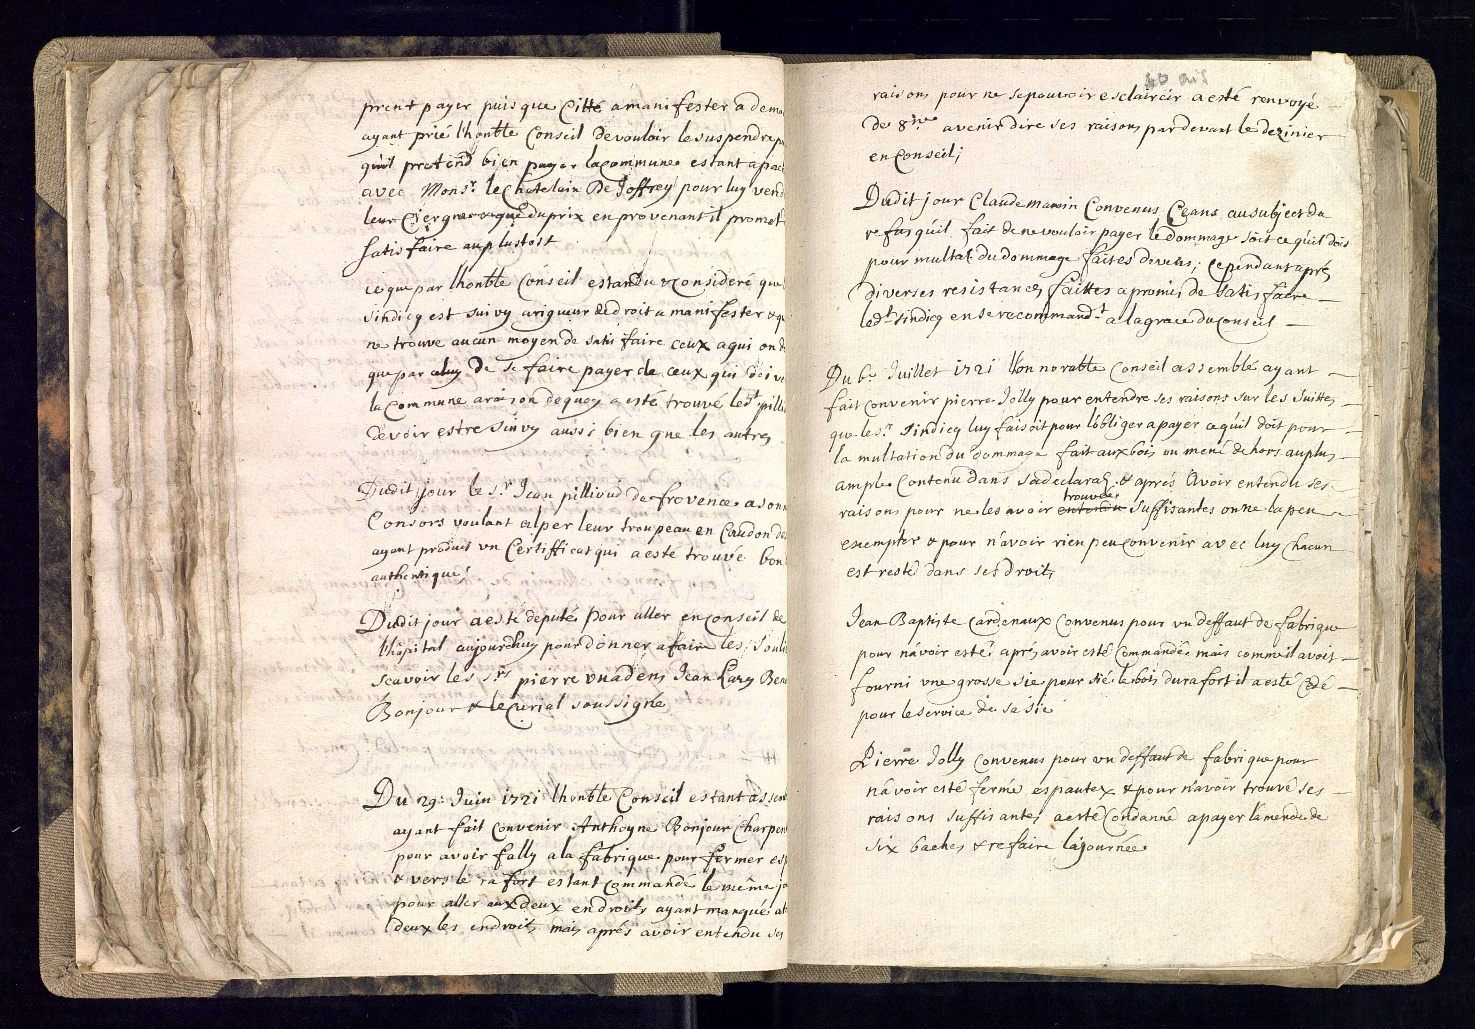 prent payer puis que Citté a manifester a dema
ayant prié lhonble Conseil De vouloir le suspendre
quil pretend bien payer la commune estant apac
avec Monsr. le Chatelain De Joffrey pour luy vend
leur Cierge du prix en provenant il promet
satisfaire au plustost
ce que par lhonble Conseil estandu & consideré que
sindicq est suivy a rigueur de droit a manifester & q
ne trouve aucun moyen de satisfaire ceux a qui on d
que par celuy De se faire payer de ceux qui doive
la commune a raison de quoy a esté trouvé ledt pilli
devoir estre suivy aussi bien que les autres
Dudit jour le sr. Jean pillioud de frovence a son
Consors voulant alper leur troupeau en Caudon
ayant produit un Certifficat qui a esté trouvé bon
authentique
Dudit jour a esté deputé pour aller en conseil de
lhôpital aujourdhuy pour donner a faire les soul
scavoir les srs pierre vuadens Jean Lary Ben
Bonjour & le Curial soussigné
Du 29: Juin 1721 lhonble Conseil estant assem
ayant fait convenir Anthoyne Bonjour Charpen
pour avoir fally a la fabrique pour fermer es
& vers le rafort estant commandé le même jo
pour aller aux deux endroits ayant manqué a
deux les endroits mais aprés avoir entendu ses
40 bis
raisons pour ne se pouvoir esclaircir a esté renvoyé
de 8ne avenir dire ses raisons par devant le dezinier
en Conseil;
Dudit jour Claude mamin Convenus Ceans au subject du
refus quil fait de ne vouloir payer le dommage soit ce quil dois
pour multat. du dommage faites devens; Cependant aprés
diverses resistances faittes a promis de satisfaire
ledt. sindicq en se recommandt. a la grace du Conseil
Du 6e. Juillet 1721 l'honnorable Conseil assemblé ayant
fait convenir pierre Jolly pour entendre ses raisons sur les suittes
que le sr. sindicq luy faisoit pour lobliger a payer ce quil doit pour
la multation du dommage fait aux bois ou mené dehors au plus
ample Contenu dans sa declaraõn. & aprés avoir entendu ses
raisons pour ne les avoir entendu trouvée suffisantes on ne la peu
exempter & pour n'avoir rien peu convenir avec luy chacun
est resté dans ses droits
Jean Baptiste Cardenaux Convenus pour un deffaut de fabrique
pour n'avoir esté aprés avoir esté Commandé mais comme il avoit
fourni une grosse sie pour sié le bois du rafort il a esté Cedé
pour le service de sa sie
Pierre Jolly Convenus pour un deffaut de fabrique pour
n'avoir esté fermé es pautex & pour n'avoir trouvé ses
raisons suffisantes a esté Condanné a payer lamende de
six baches & refaire la journée